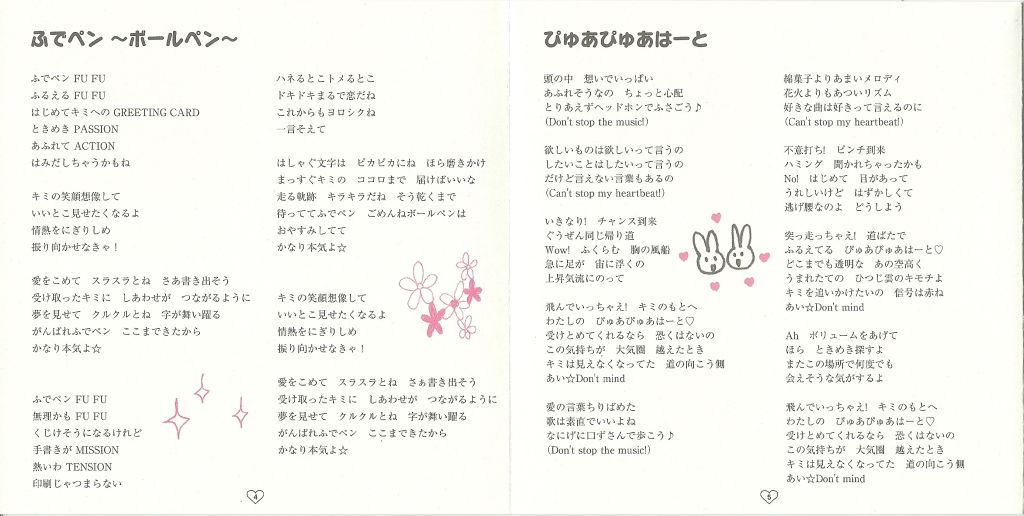 ふでペン ～ボールペン～
ふでペン FU FU
ふるえる FU FU
はじめてキミへの GREETING CARD
ときめき PASSION
あふれて ACTION
はみだしちゃうかもね
キミの笑顔想像して
いいとこ見せたくなるよ
情熱をにぎりしめ
振り向かせなきゃ！
愛をこめて　スラスラとね　さあ書き出そう
受け取ったキミに　しあわせが　つながるように
夢を見せて　クルクルとね　字が舞い躍る
がんばれふでペン　ここまできたから
かなり本気よ☆
ふでペン FU FU
無理かも FU FU
くじけそうになるけれど
手書きが MISSION
熱いわ TENSION
印刷じゃつまらない
ハネるとこトメるとこ
ドキドキまるで恋だね
これからもヨロシクね
一言そえて
はしゃぐ文字は　ピカピカにね　ほら磨きかけ
まっすぐキミの　ココロまで　届けばいいな
走る軌跡　キラキラだね　そう乾くまで
待っててふでペン　ごめんねボールペンは
おやすみしてて
かなり本気よ☆
キミの笑顔想像して
いいとこ見せたくなるよ
情熱をにぎりしめ
振り向かせなきゃ！
愛をこめて　スラスラとね　さぁ書き出そう
受け取ったキミに　しあわせが　つながるように
夢を見せて　クルクルとね　字が舞い躍る
がんばれふでペン　ここまできたから
かなり本気よ☆
4
ぴゅあぴゅあはーと
頭の中　想いでいっぱい
あふれそうなの　ちょっと心配
とりあえずヘッドホンでふさごう♪
(Don't stop the music!)
欲しいものは欲しいって言うの
したいことはしたいって言うの
だけど言えない言葉もあるの
(Can't stop my heartbeat!)
いきなり!　チャンス到来
ぐうぜん同じ帰り道
Wow!　ふくらむ　胸の風船
急に足が　宙に浮くの
上昇気流にのって
飛んでいっちゃえ!　キミのもとへ
わたしの　ぴゅあぴゅあはーと♡
受けとめてくれるなら　恐くはないの
この気持ちが　大気圏　越えたとき
キミは見えなくなってた　道の向こう側
あい☆Don't mind
愛の言葉ちりばめた
歌は素直でいいよね
なにげに口ずさんで歩こう♪
(Don't stop the music!)
綿菓子よりあまいメロディ
花火よりもあついリズム
好きな曲は好きって言えるのに
(Can't stop my heartbeat!)
不意打ち!　ピンチ到来
ハミング　聞かれちゃったかも
No!　はじめて　目があって
うれしいけど　はずかしくて
逃げ腰なのよ　どうしよう
突っ走っちゃえ!　道ばたで
ふるえてる　ぴゅあぴゅあはーと♡
どこまでも透明な　あの空高く
うまれたての　ひつじ雲のキモチよ
キミを追いかけたいの　信号は赤ね
あい☆Don't mind
Ah　ボリュームをあげて
ほら　ときめき探すよ
またこの場所で何度でも
会えそうな気がするよ
飛んでいっちゃえ!　キミのもとへ
わたしの　ぴゅあぴゅあはーと♡
受けとめてくれるなら　恐くはないの
この気持ちが　大気圏　越えたとき
キミは見えなくなってた　道の向こう側
あい☆Don't mind
5